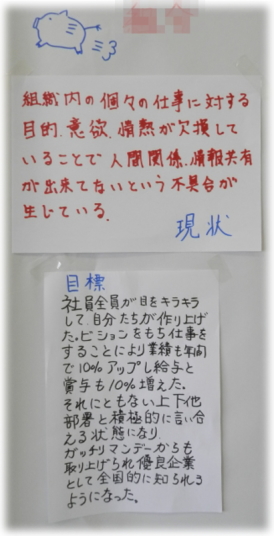 組織内の個々の仕事に対する
目的、意欲、情熱が欠損して
いることで人間関係、情報共有
が出来てないという不具合が
生じている。
現状
目標
社員全員が目をキラキラ
して、自分たちが作り上げ
た。ビションをもち仕事を
することにより業績も年間
で10%アップし給与と
賞与も10%増えた。
それにともない上下他
部署と積極的に言い合
える状態になり、
ガッチリマンデーからも
取り上げられ優良企業
として全国的に知られる
ようになった。